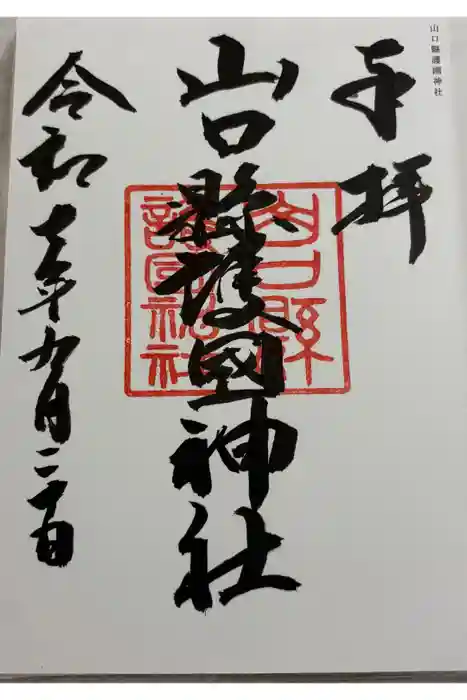 山口縣護國神社
奉拝
山口縣護國神社
山口縣
護國神社
令和七年九月二十日